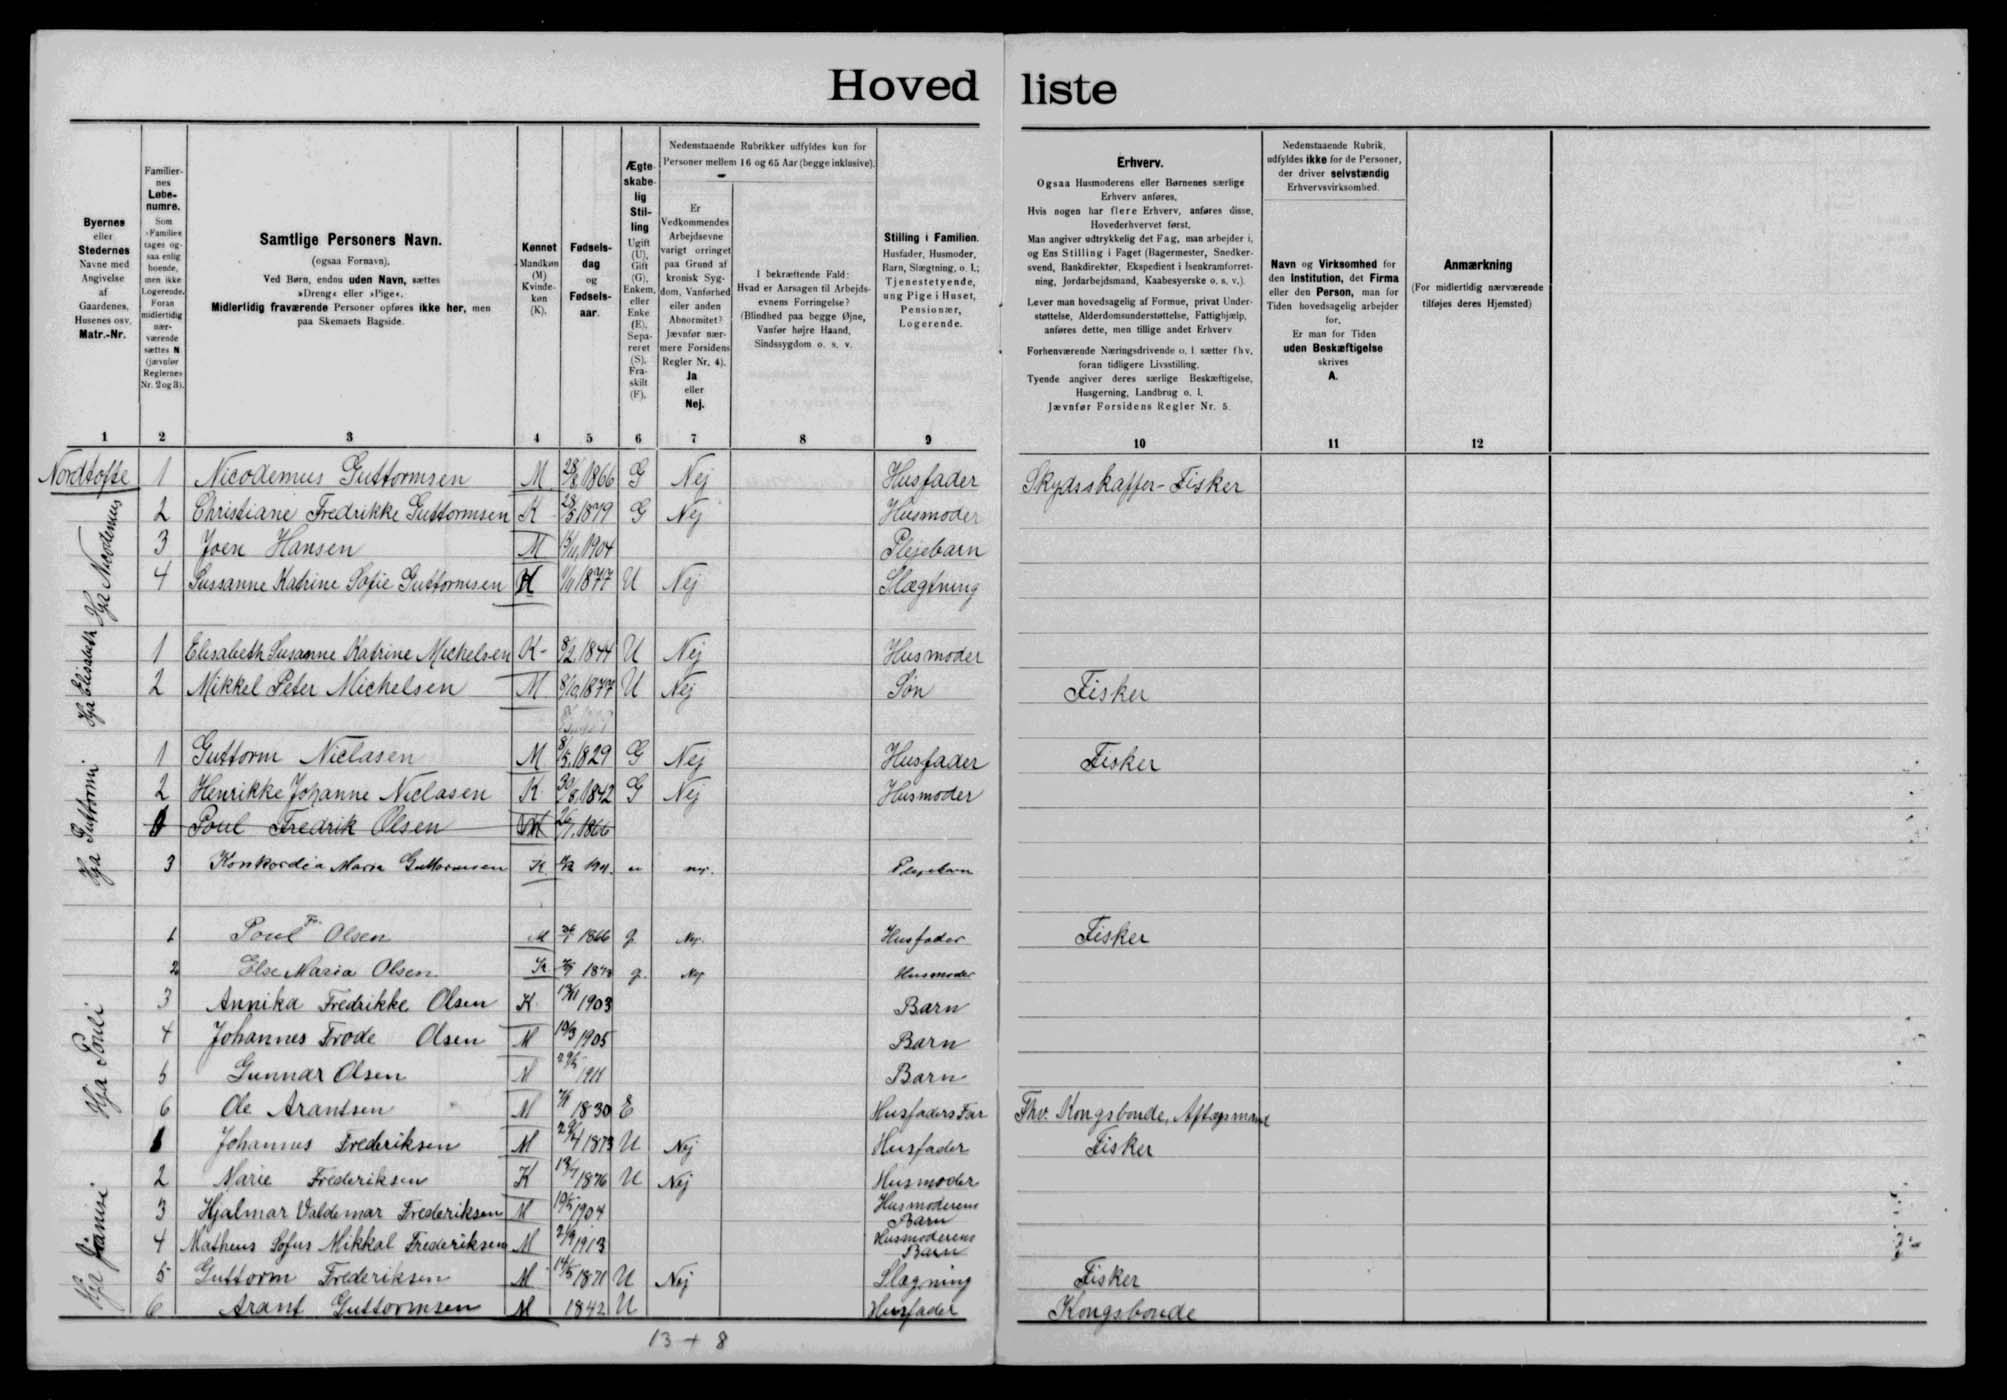 Hoved liste
Byernes
eller
Stedernes
Navne med
Angivelse
af
Gaardenes,
Husenes osv.
Matr.-Nr.
Familier-
nes
Løbe-
numre.
Som
»Familie«
tages og-
saa enlig
boende,
men ikke
Logerende.
Foran
midlertidig
nær-
værende
sættes N
(jævnfør
Reglernes
Nr. 2 og 3).
Samtlige Personers Navn.
(ogsaa Fornavn).
Ved Børn, endnu uden Navn, sættes
»Dreng« eller »Pige«.
Midlertidig fraværende Personer opføres ikke her, men
paa Skemaets Bagside.
Kønnet
Mandkøn
(M)
Kvinde-
køn
(K).
Fødsels-
dag
og
Fødsels-
aar.
Ægte-
skabe-
lig
Stil-
ling
Ugift
(U),
Gift
(G),
Enkem.
eller
Enke
(E),
Sepa-
reret
(S),
Fra-
skilt
(F).
Nedenstaaende Rubrikker udfyldes kun for
Personer mellem 16 og 65 Aar (begge inklusive).
Er
Vedkommendes
Arbejdsevne
varigt forringet
paa Grund af
kronisk Syg-
dom, Vanførhed
eller anden
Abnormitet?
Jævnfør nær-
mere Forsidens
Regler Nr. 4).
Ja
eller
Nej.
I bekræftende Fald:
Hvad er Aarsagen til Arbejds-
evnens Forringelse?
(Blindhed paa begge Øjne,
Vanfør højre Haand,
Sindssygdom o. s. v.
Stilling i Familien.
Husfader, Husmoder,
Barn, Slægtning, o. l.;
Tjenestetyende,
ung Pige i Huset,
Pensionær,
Logerende.
Erhverv.
Ogsaa Husmoderens eller Børnenes særlige
Erhverv anføres.
Hvis nogen har flere Erhverv, anføres disse,
Hovederhvervet først.
Man angiver udtrykkelig det Fag, man arbejder i,
og Ens Stilling i Faget (Bagermester, Snedker-
svend, Bankdirektør, Ekspedient i Isenkramforret-
ning, Jordarbejdsmand, Kaabesyerske o. s. v.).
Lever man hovedsagelig af Formue, privat Under-
støttelse, Alderdomsunderstøttelse, Fattighjælp,
anføres dette, men tillige andet Erhverv
Forhenværende Næringsdrivende o. l. sætter fhv.
foran tidligere Livsstilling.
Tyende angiver deres særlige Beskæftigelse,
Husgerning, Landbrug o. l.
Jævnfør Forsidens Regler Nr. 5.
Nedenstaaende Rubrik,
udfyldes ikke for de Personer,
der driver selvstændig
Erhvervsvirksomhed.
Navn og Virksomhed for
den Institution, det Firma
eller den Person, man for
Tiden hovedsagelig arbejder
for.
Er man for Tiden
uden Beskæftigelse
skrives
A.
Anmærkning
(For midlertidig nærværende
tilføjes deres Hjemsted)
1 2 3 4 5 6 7 8 9 10 11 12
Nordtofte 1 Nicodemus Guttormsen M 1866 G Nej Husfader Skydsskaffer-Fisker
Hja Nicodemus
2 Christiane Fredrikke Guttormsen K 28/5 1879 G Nej Husmoder
3 Joen Hansen M 1904 Plejebarn
4 Sussanne Katrine Sofie Guttormsen K 1877 U Nej Slægtning
Hja Elisabeth
1 Elisabeth Susanne Katrine Michelsen K 8/2 1844 U Nej Husmoder
2 Mikkel Peter Michelsen M 8/10 1877 U Nej Søn Fisker
Hja Guttormi
1 Guttorm Niclasen M 8/5 1829 G Nej Husfader Fisker
2 Henrikke Johanne Niclasen K 30/8 1842 G Nej Husmoder
1 Poul Fredrik Olsen M 26/1 1866
3 Konkordia Maria Guttormsen K u nej. Plejebarn
Hja Pouli
1 Poul Fr. Olsen M 26/1 1866 g. Nej. Husfader Fisker
2 Else Maria Olsen K g. Nej Husmoder
3 Annika Fredrikke Olsen K 13/11 1903 Barn
4 Johannes Frode Olsen M 19/3 1905 Barn
5 Gunnar Olsen M 1911 Barn
6 Ole Arantsen M 1830 E Husfaders Far Fhv. Kongsbonde, Aftægsmand
Hja Jóanisi
1 Johannus Frederiksen M 29/4 1873 U Nej Husfader Fisker
2 Marie Frederiksen K 1876 U Nej Husmoder
3 Hjalmar Valdemar Frederiksen M 19/5 1904 Husmoderens Barn
4 Matheus Sofus Mikkal Frederiksen M 2/9 1913 Husmoderens Barn
5 Guttorm Frederiksen M 14/5 1871 U Nej Slægning Fisker
6 Arant Guttormsen M 1842 U Husfader Kongsbonde
13 + 8